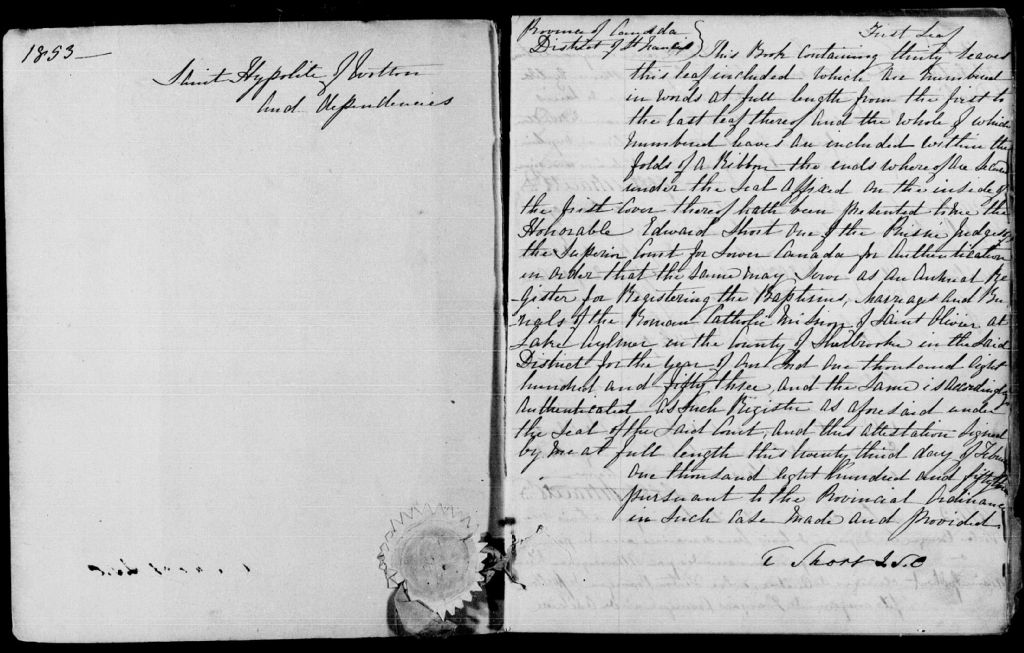 1853
Saint Hypolite of Wotton
and dependencies
First Leaf
Province of Canada
District of St Francis
This Book containing thirty leaves
this leaf included which are numbered
in words at full length from the first to
the last leaf thereof and the whole of which
numbered leaves are included within the
folds of a Ribbon the ends whereof are secured
under the seal affixed on the inside of
the first cover thereof hath been presented to me the
Honorable Edward Short one of the Puisne Judges of
the Superior Court for Lower Canada for Authentication
in order that the same may serve as an Annual Re
gister for Registering the Baptisms, Marriages and Bu
rials of the Roman Catholic Mission of Saint Olivier at
Lake Aylmer in the County of Sherbrooke in the said
District for the year of our Lord one thousand eight
hundred and fifty three, and the same is accordingly
authenticated as such Register as aforesaid under
the seal of the said Court, and this attestation signed
by me at full length this twenty third day of Febru
one thousand eight hundred and fifty three
pursuant to the Provincial Ordinance
in such case made and provided
E Short J.S.C